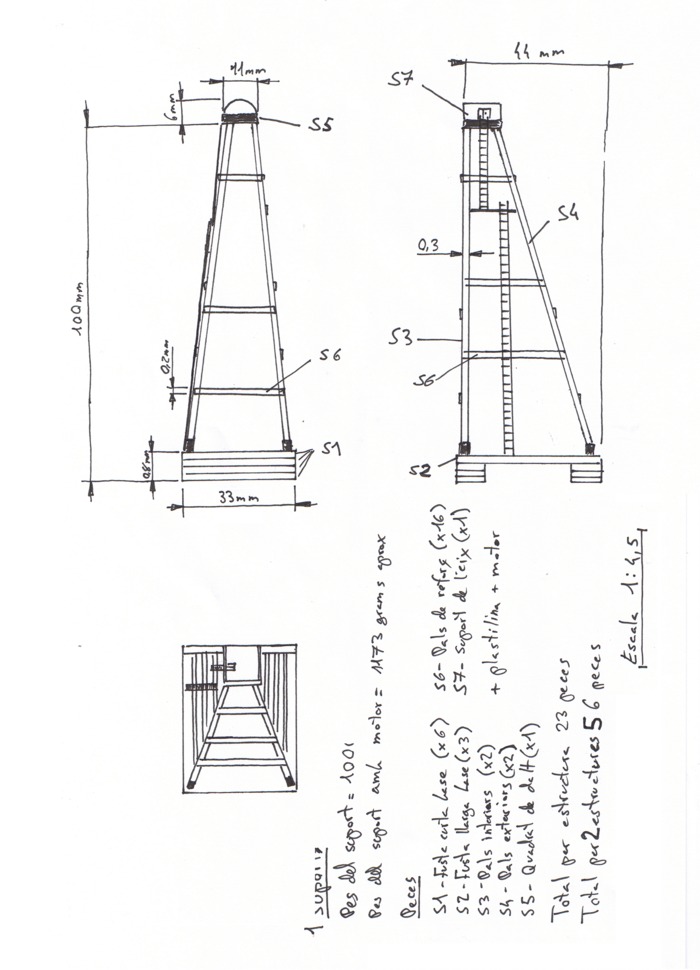 11mm
6mm
S5
100mm
0,2mm
S6
0,8mm
S1
33mm
44 mm
S7
S4
0,3
S3
S6
S2
1 suport
Pes del suport = 100
Pes del suport amb motor = 1173 grams aprox
Peces
S1 - Fusta curta base (x6)
S2 - Fusta llarga base (x3)
S3 - Pals interiors (x2)
S4 - Pals exteriors (x2)
S5 - Quadrat de dalt (x1)
S6 - Pals de reforç (x16)
S7 - Suport de l'eix (x1)
+ plastilina + motor
Total per estructura 23 peces
Total per 2 estructures 56 peces
Escala 1:4,5